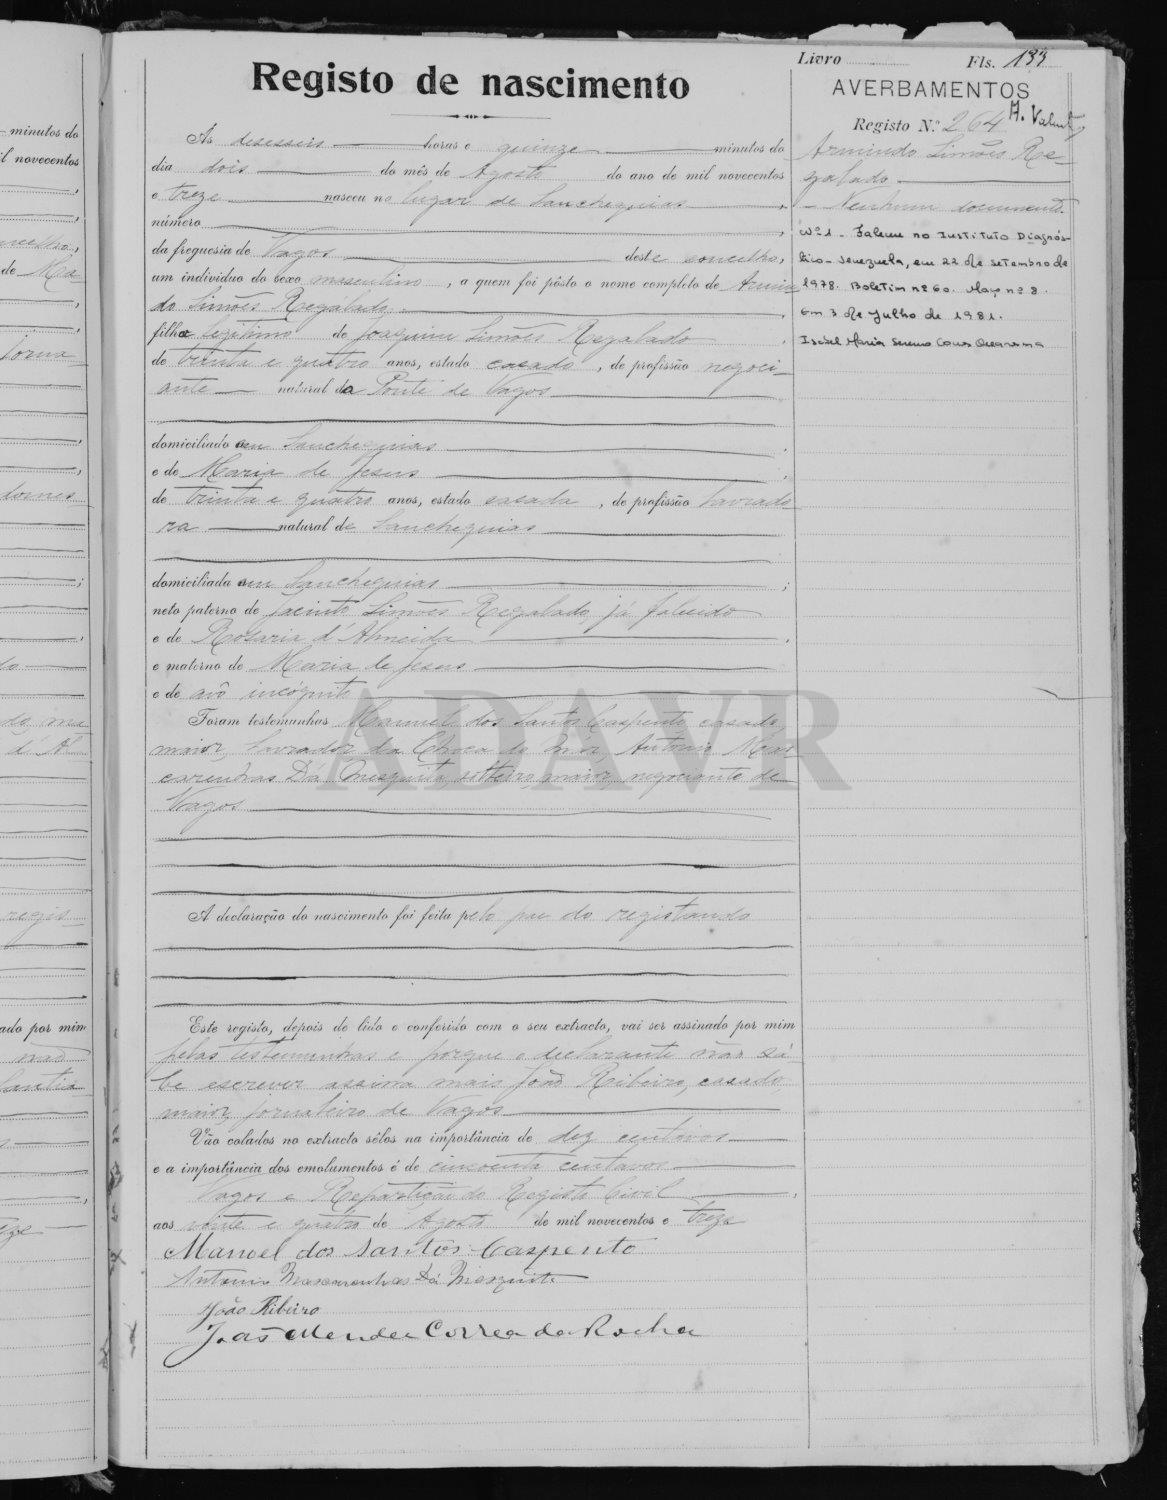 minutos do
il novecentos
Livro Fls. 133
Registo de nascimento
AVERBAMENTOS
Registo N.º 264
Às desesseis horas e quinze minutos do
dia dois do mês de Agosto do ano de mil novecentos
e treze nasceu no lugar de Sanchequias,
número
da freguesia de Vagos deste concelho,
um indivíduo do sexo masculino, a quem foi pôsto o nome completo de Armin
do Simões Regalado,
filho legitimo de Joaquim Simões Regalado,
de trinta e quatro anos, estado casado, de profissão negoci-
ante natural da Ponte de Vagos
domiciliado em Sanchequias,
e de Maria de Jesus,
de trinta e quatro anos, estado casada, de profissão lavrado
ra natural de Sanchequias
domiciliada em Sanchequias;
neto paterno de Jacinto Simões Regalado, já falecido
e de Rosaria d'Almeida,
e materno de Maria de Jesus
e de avô incógnito
Foram testemunhas Manuel dos Santos Caspento, casado,
maior, lavrador da Choca do Mar, Antonio Mas
carenhas Dá Mesquita, solteiro, maior, negociante de
Vagos
A declaração do nascimento foi feita pelo pae do registando
Este registo, depois de lido e conferido com o seu extracto, vai ser assinado por mim
pelas testemunhas e porque o declarante não sa-
be escrever assina mais João Ribeiro, casado,
maior, jornaleiro de Vagos
Vão colados no extracto sêlos na importância de dez centavos
e a importância dos emolumentos é de cincoenta centavos
Vagos e Repartição do Registo Civil,
aos vinte e quatro de Agosto de mil novecentos e treze
Manoel dos Santos Caspento
Antonio Mascarenhas Dá Mesquita
João Ribeiro
João Mendes Correa da Rocha
Armindo Simões Re-
galado
Nenhum documento
Nº 1 - Faleceu no Instituto Diagnós-
tico - Venezuela, em 22 de setembro de
1978. Boletim nº 60. Maço nº 8.
Em 3 de Julho de 1981.
ADAVR